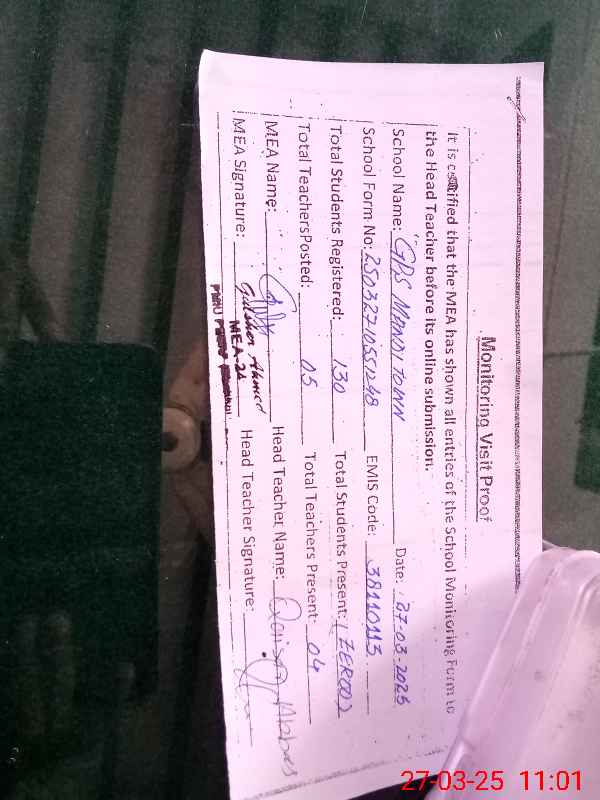 Monitoring Visit Proof
It is certified that the MEA has shown all entries of the School Monitoring Form to
the Head Teacher before its online submission.
School Name: GPS MANDI TOWN Date: 27-03-2025
School Form No: 25032710551248 EMIS Code: 38110113
Total Students Registered: 130 Total Students Present: (ZERO0)
Total Teachers Posted: 05 Total Teachers Present: 04
MEA Name: Gulsher Ahmed Head Teacher Name: Abbas
MEA Signature: MEA-24 Head Teacher Signature:
27-03-25 11:01